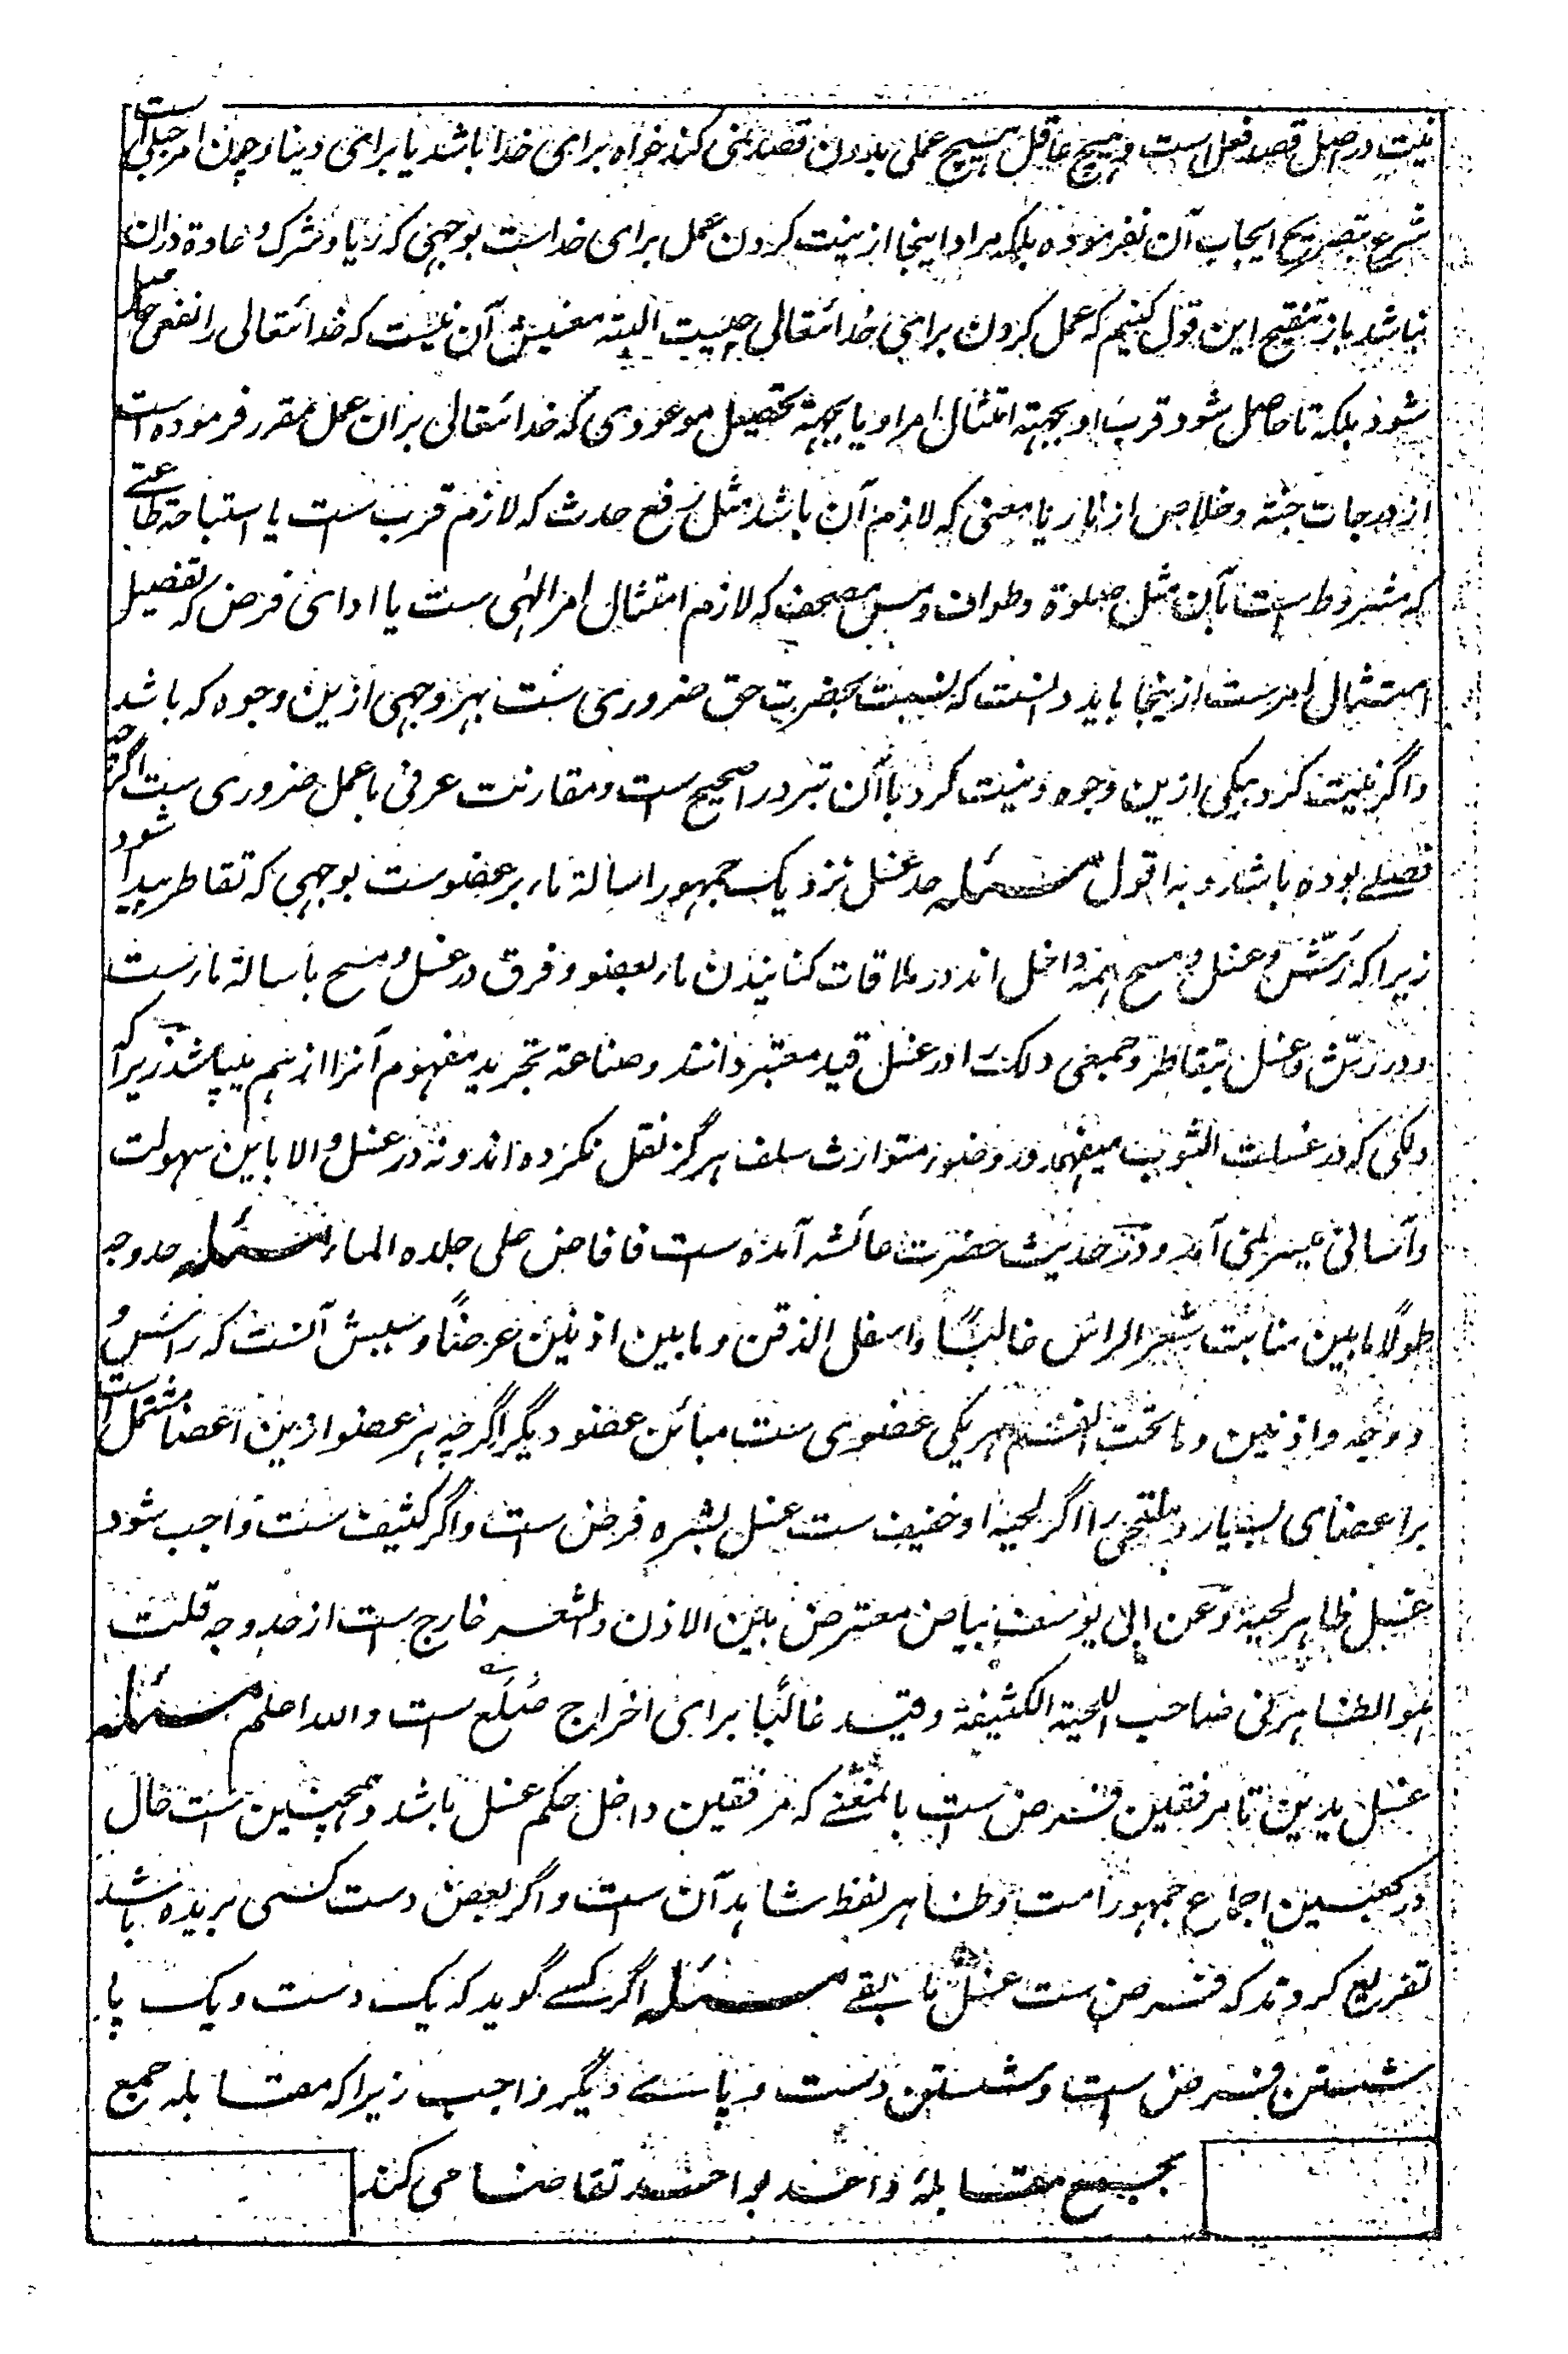 نیت در اصل قصد فعل است و هیچ عاقل هیچ عملی بدون قصد نمی کند خواه برای خدا باشد یا برای دنیا و چون امر جبلی است
شرع بتصریح ایجاب آن نفرموده بلکه مراد اینجا از نیت کردن عمل برای خداست بوجهی که ریا و شرک و عادة دران
نباشد باز تنقیح این قول کنیم که عمل کردن برای خدائتعالی چیست البته معنیش آن نیست که خدائتعالی را نفعی حاصل
شود بلکه تا حاصل شود قرب او بجهة امتثال امر او یا بجهة تحصیل موعودی که خدائتعالی بران عمل مقرر فرموده است
از درجات جنة و خلاص از نار یا معنی که لازم آن باشد مثل رفع حدث که لازم قرب ست یا استباحة طاعتے
که مشروط ست بآن مثل صلوة و طواف و مس مصحف که لازم امتثال امر الهٰی ست یا ادای فرض که تفصیل
امتثال امرست ازینجا باید دانست که نسبت بحضرت حق ضروری ست بهر وجهی ازین وجوه که باشد
و اگر نیت کرد بیکی ازین وجوه و نیت کرد با آن تبرد را صحیح ست و مقارنت عرفی با عمل ضروری ست اگرچه
فصلے بوده باشد و به اقول مسئله حد غسل نزدیک جمهور اسالة ماء بر عضوست بوجهی که تقاطر پیدا شود
زیرا که رَشّ و غسل و مسح همه داخل اند در ملاقات کنانیدن ماء بعضو و فرق در غسل و مسح باسالة ماءست
و در رش و غسل بتقاطر و جمعی دلک را در غسل قید معتبر دانند و صناعة تجرید مفهوم آنرا از هم میپاشد زیرا که
دلکی که در غسلت الثوب میفهمد در وضوء متوارث سلف هرگز نقل نکرده اند و نه در غسل و الا باین سهولت
و آسانی میسر نمی آمد و در حدیث حضرت عائشه آمده ست فافاض علی جلده الماء مسئله حد وجه
طولًا ما بین منابت شعر الراس غالبًا و اسفل الذقن و ما بین اذنین عرضًا و سببش آنست که راس و
و وجه و اذنین و ما تحت الفم هر یکی عضوی ست مبائن عضو دیگر اگرچه هر عضو ازین اعضا مشتمل است
بر اعضای بسیار و ملتحی را اگر لحیه او خفیف ست غسل بشره فرض ست و اگر کثیف ست واجب شود
غسل ظاهر لحیه و عن ابی یوسف بیاض معترض بین الاذن و الشعر خارج ست از حد وجه قلت
هو الظاهر فی صاحب اللحیة الکثیفة و قید غالبًا برای اخراج صَلَع ست والله اعلم مسئله
غسل یدین تا مرفقین فرض ست بالمعنے که مرفقین داخل حکم غسل باشد و همچنین ست حال
در کعبین اجماع جمهور امت و ظاهر لفظ شاهد آن ست و اگر بعض دست کسی بریده باشد
تفریع کردند که فرض ست غسل ما بقے مسئله اگر کسے گوید که یک دست و یک پا
شستن فرض ست و شستن دست و پاے دیگر واجب زیرا که مقابله جمع
بجمع مقابلهٔ واحد بواحد تقاضا می کند